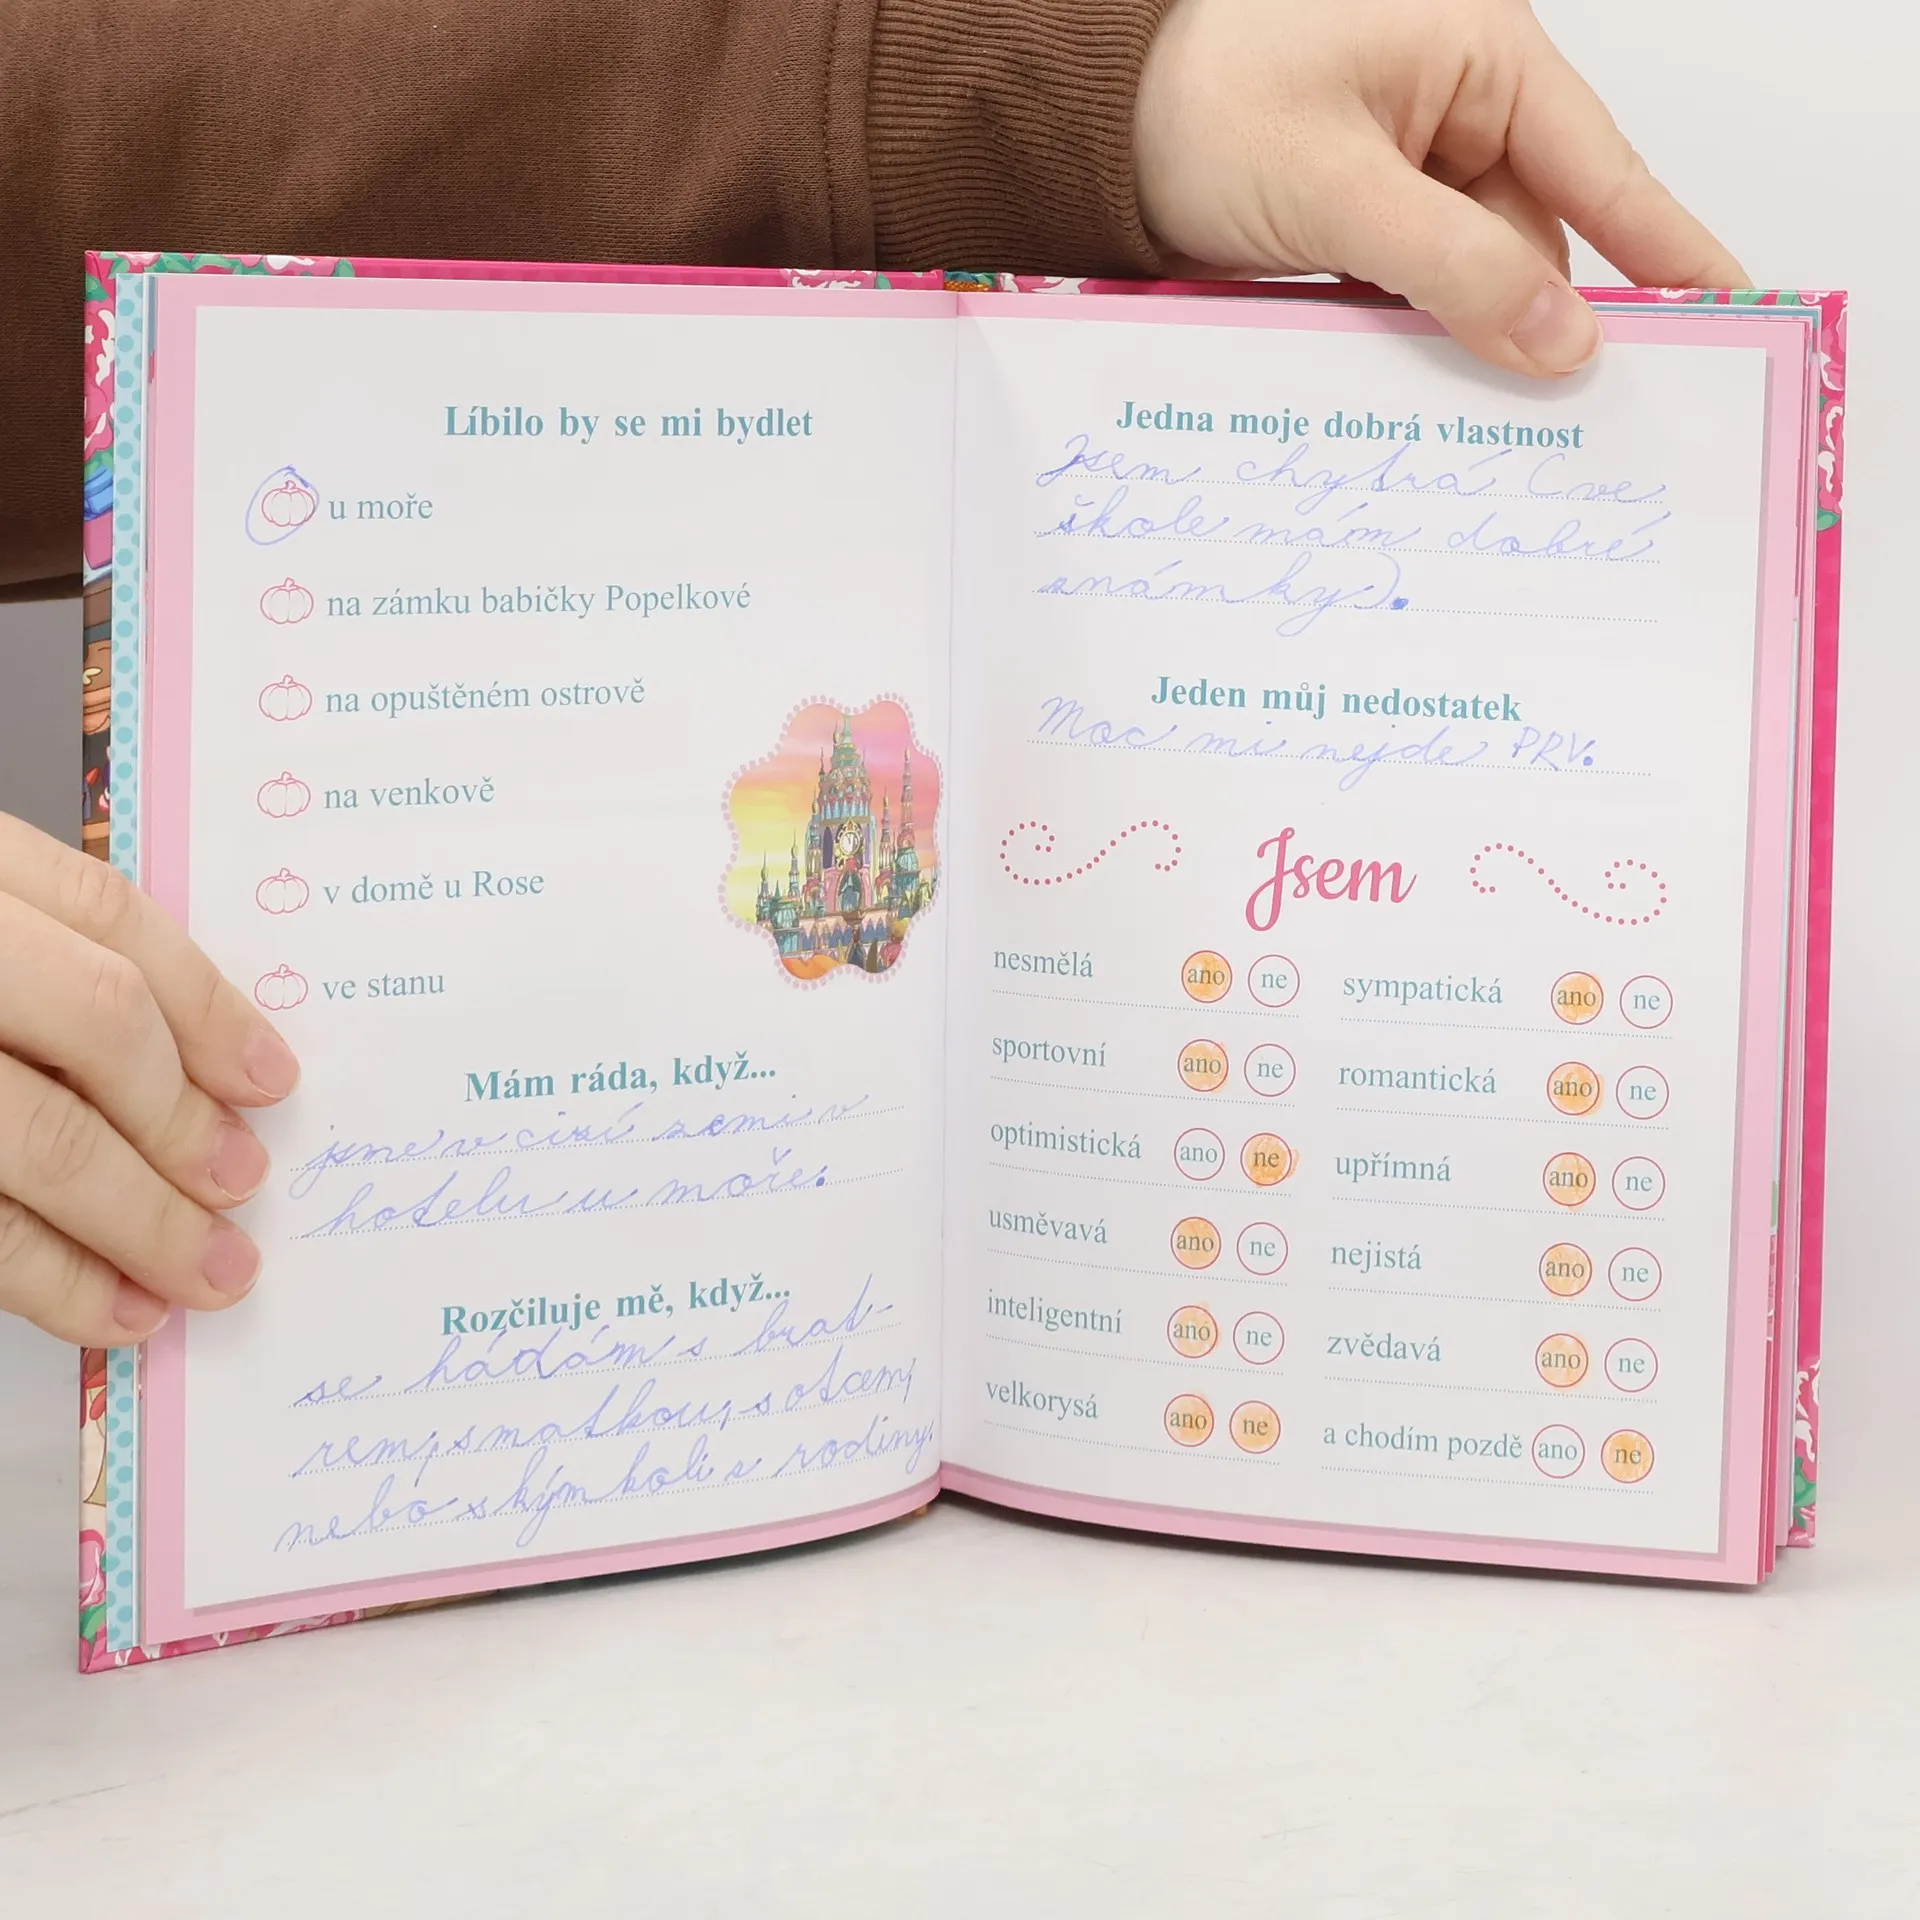 Líbilo by se mi bydlet
u moře
na zámku babičky Popelkové
na opuštěném ostrově
na venkově
v domě u Rose
ve stanu
Mám ráda, když...
jsme v cizí zemi v
hotelu u moře.
Rozčiluje mě, když...
se hádám s brat-
rem, s matkou, s otcem,
nebo s kým koli z rodiny.
Jedna moje dobrá vlastnost
Jsem chytrá (ve
škole mám dobré
známky).
Jeden můj nedostatek
Moc mi nejde PRV.
Jsem
nesmělá ano ne
sportovní ano ne
optimistická ano ne
usměvavá ano ne
inteligentní ano ne
velkorysá ano ne
sympatická ano ne
romantická ano ne
upřímná ano ne
nejistá ano ne
zvědavá ano ne
a chodím pozdě ano ne